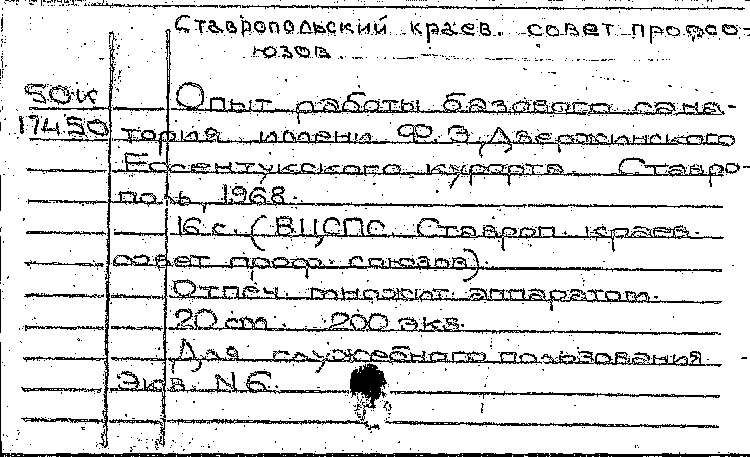 Ставропольский краев. совет профсо-
юзов.
50к
Опыт работы базового сана-
17450
тория имени Ф.Э.Дзержинского
Ессентукского курорта. Ставро-
поль, 1968.
16 с. (ВЦСПС. Ставроп. краев.
совет проф. союзов).
Отпеч. множит. аппаратом.
20 см. 200 экз.
Для служебного пользования
Экз. N 6.